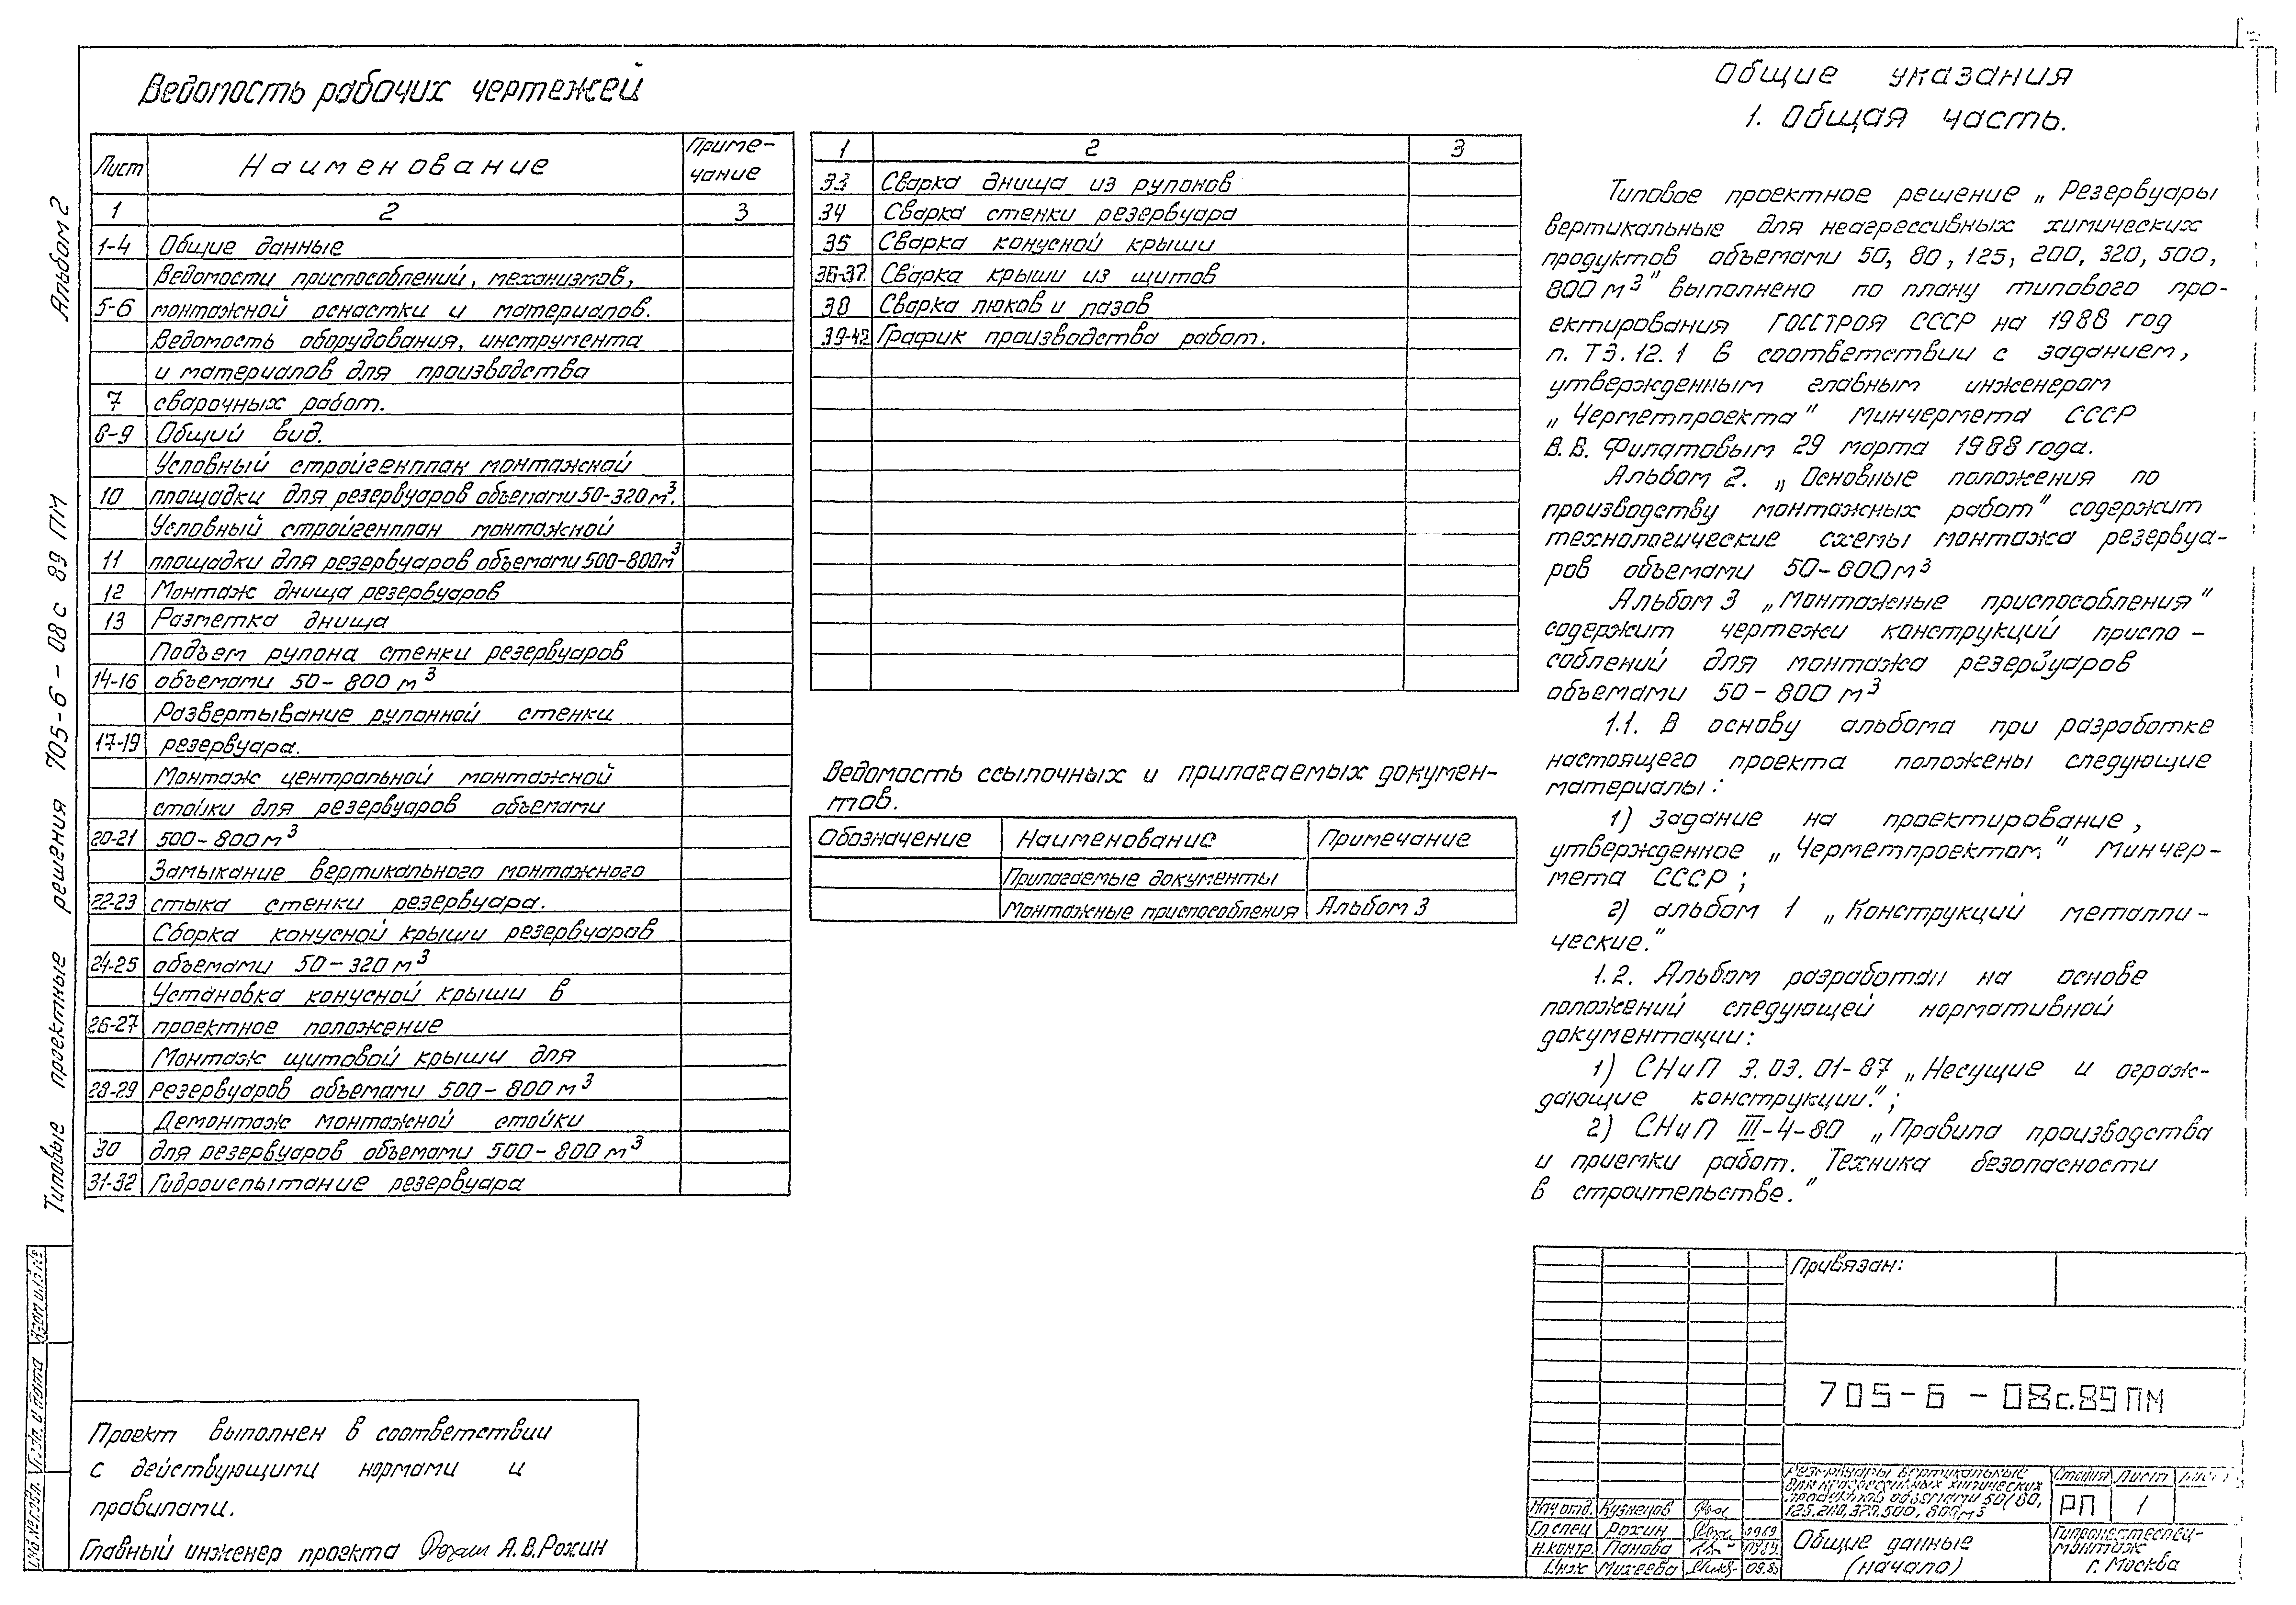 Ведомость рабочих чертежей
Лист Наименование Приме-
чание
1 2 3
1-4 Общие данные
Ведомости приспособлений, механизмов,
5-6 монтажной оснастки и материалов.
Ведомость оборудования, инструмента
и материалов для производства
7 сварочных работ.
8-9 Общий вид.
Условный стройгенплан монтажной
10 площадки для резервуаров объемами 50-320 м³.
Условный стройгенплан монтажной
11 площадки для резервуаров объемами 500-800м³
12 Монтаж днища резервуаров
13 Разметка днища
Подъем рулона стенки резервуаров
14-16 объемами 50-800 м³
Развертывание рулонной стенки
17-19 резервуара.
Монтаж центральной монтажной
стойки для резервуаров объемами
20-21 500-800 м³
Замыкание вертикального монтажного
22-23 стыка стенки резервуара.
Сборка конусной крыши резервуаров
24-25 объемами 50-320 м³
Установка конусной крыши в
26-27 проектное положение
Монтаж щитовой крыши для
28-29 резервуаров объемами 500-800 м³
Демонтаж монтажной стойки
30 для резервуаров объемами 500-800 м³
31-32 Гидроиспытание резервуара
1 2 3
33 Сварка днища из рулонов
34 Сварка стенки резервуара
35 Сварка конусной крыши
36-37. Сварка крыши из щитов
38 Сварка люков и лазов
39-42 График производства работ.
Ведомость ссылочных и прилагаемых докумен-
тов.
Обозначение Наименование Примечание
Прилагаемые документы
Монтажные приспособления Альбом 3
Общие указания
1. Общая часть.
Типовое проектное решение „Резервуары
вертикальные для неагрессивных химических
продуктов объемами 50, 80, 125, 200, 320, 500,
800 м³" выполнено по плану типового про-
ектирования ГОССТРОЯ СССР на 1988 год
п. Т3.12.1 в соответствии с заданием,
утвержденным главным инженером
„Черметпроекта" Минчермета СССР
В.В. Филатовым 29 марта 1988 года.
Альбом 2. „Основные положения по
производству монтажных работ" содержит
технологические схемы монтажа резервуа-
ров объемами 50-800 м³
Альбом 3 „Монтажные приспособления"
содержит чертежи конструкций приспо-
соблений для монтажа резервуаров
объемами 50-800 м³
1.1. В основу альбома при разработке
настоящего проекта положены следующие
материалы:
1) задание на проектирование,
утвержденное „Черметпроектом" Минчер-
мета СССР;
2) альбом 1 „Конструкций металли-
ческие."
1.2. Альбом разработан на основе
положений следующей нормативной
документации:
1) СНиП 3.03.01-87 „Несущие и ограж-
дающие конструкции.";
2) СНиП III-4-80 „Правила производства
и приемки работ. Техника безопасности
в строительстве."
Типовые проектные решения 705-6-08с 89 ПМ Альбом 2
Инв.№ подл. Подп. и дата Взам.инв.№
Проект выполнен в соответствии
с действующими нормами и
правилами.
Главный инженер проекта А.В.Рохин
Привязан:
705-6-08с.89 ПМ
Резервуары вертикальные
для неагрессивных химических
продуктов объемами 50, 80,
125, 200, 320, 500, 800 м³
Стадия Лист
РП 1
Нач отд. Кузнецов
Гл спец Рохин 0989
Н.контр. Панова
Инж Михеева 09.89
Общие данные
(начало)
Гипронефтеспец-
монтаж
г. Москва